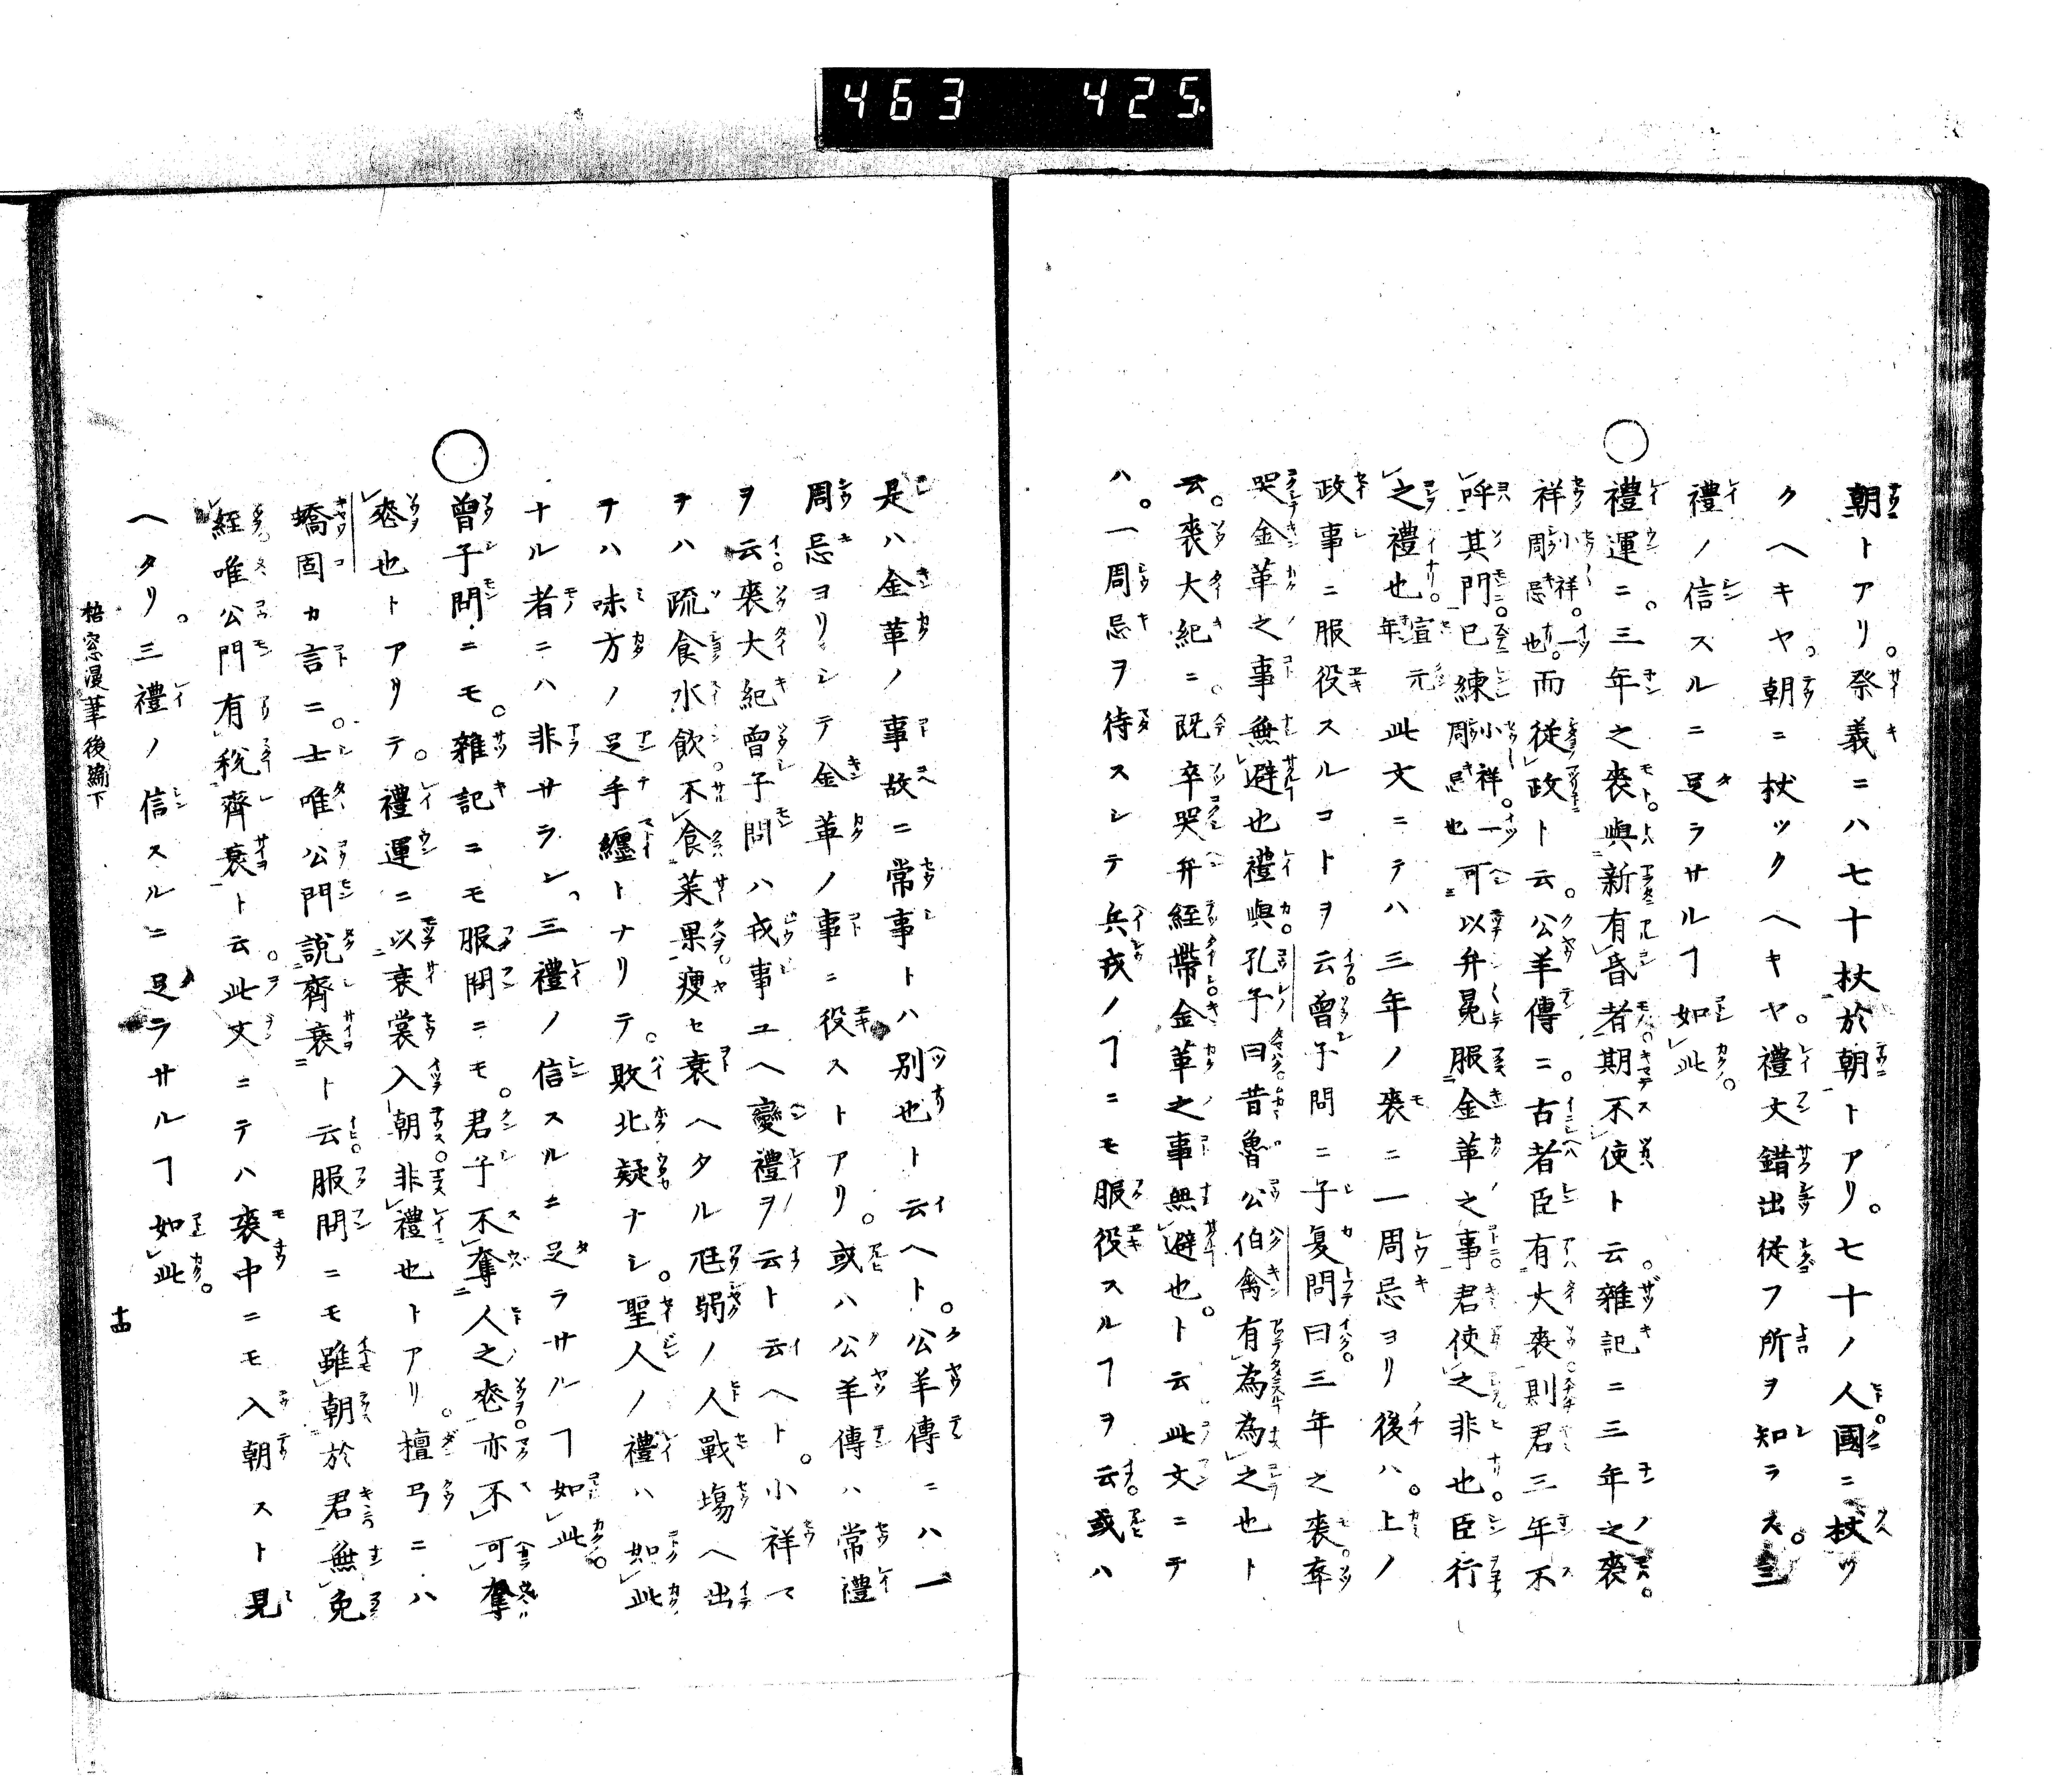 463 425
朝トアリ。祭義ニハ七十杖於朝トアリ。七十ノ人國ニ杖ツ
クヘキヤ。朝ニ杖ツクヘキヤ。禮文錯出従フ所ヲ知ラス。三
禮ノ信スルニ足ラサルヿ如此。
○禮運ニ。三年之喪與新有昏者期不使ト云。雜記ニ三年之喪。
祥小祥。一周忌也。而從政ト云。公羊傳ニ。古者臣有大喪則君三年不
呼其門。已練小祥。一周忌也可以弁冕服金革之事。君使之非也。臣行
之禮也宣元年此文ニテハ三年ノ喪ニ一周忌ヨリ後ハ。上ノ
政事ニ服役スルコトヲ云。曾子問ニ子夏問曰三年之喪卒
哭金革之事無避也禮與。孔子曰昔魯公伯禽有為為之也ト
云。喪大紀ニ。既卒哭弁絰帶金革之事無避也。ト云此文ニテ
ハ。一周忌ヲ待スシテ兵戎ノヿニモ服役スルヿヲ云。或ハ
是ハ金革ノ事故ニ常事トハ別也ト云ヘト。公羊傳ニハ一
周忌ヨリシテ金革ノ事ニ役ストアリ。或ハ公羊傳ハ常禮
ヲ云。喪大紀曾子問ハ戎事ユヘ變禮ヲ云ト云ヘト。小祥マ
テハ疏食水飲。不食菜果。瘦セ衰ヘタル尫弱ノ人戰場ヘ出
テハ味方ノ足手纏トナリテ。敗北疑ナシ。聖人ノ禮ハ如此
ナル者ニハ非サラン。三禮ノ信スルニ足ラサルヿ如此。
○曾子問ニモ。雜記ニモ服問ニモ。君子不奪人之喪。亦不可奪
喪也トアリテ。禮運ニ以衰裳入朝。非禮也トアリ。檀弓ニハ
蟜固カ言ニ。士唯公門說齊衰ト云。服問ニモ雖朝於君無免
絰。唯公門有稅齊衰ト云。此文ニテハ喪中ニモ入朝スト見
ヘタリ。三禮ノ信スルニ足ラサルヿ如此。
梧窓漫筆後編下
十四